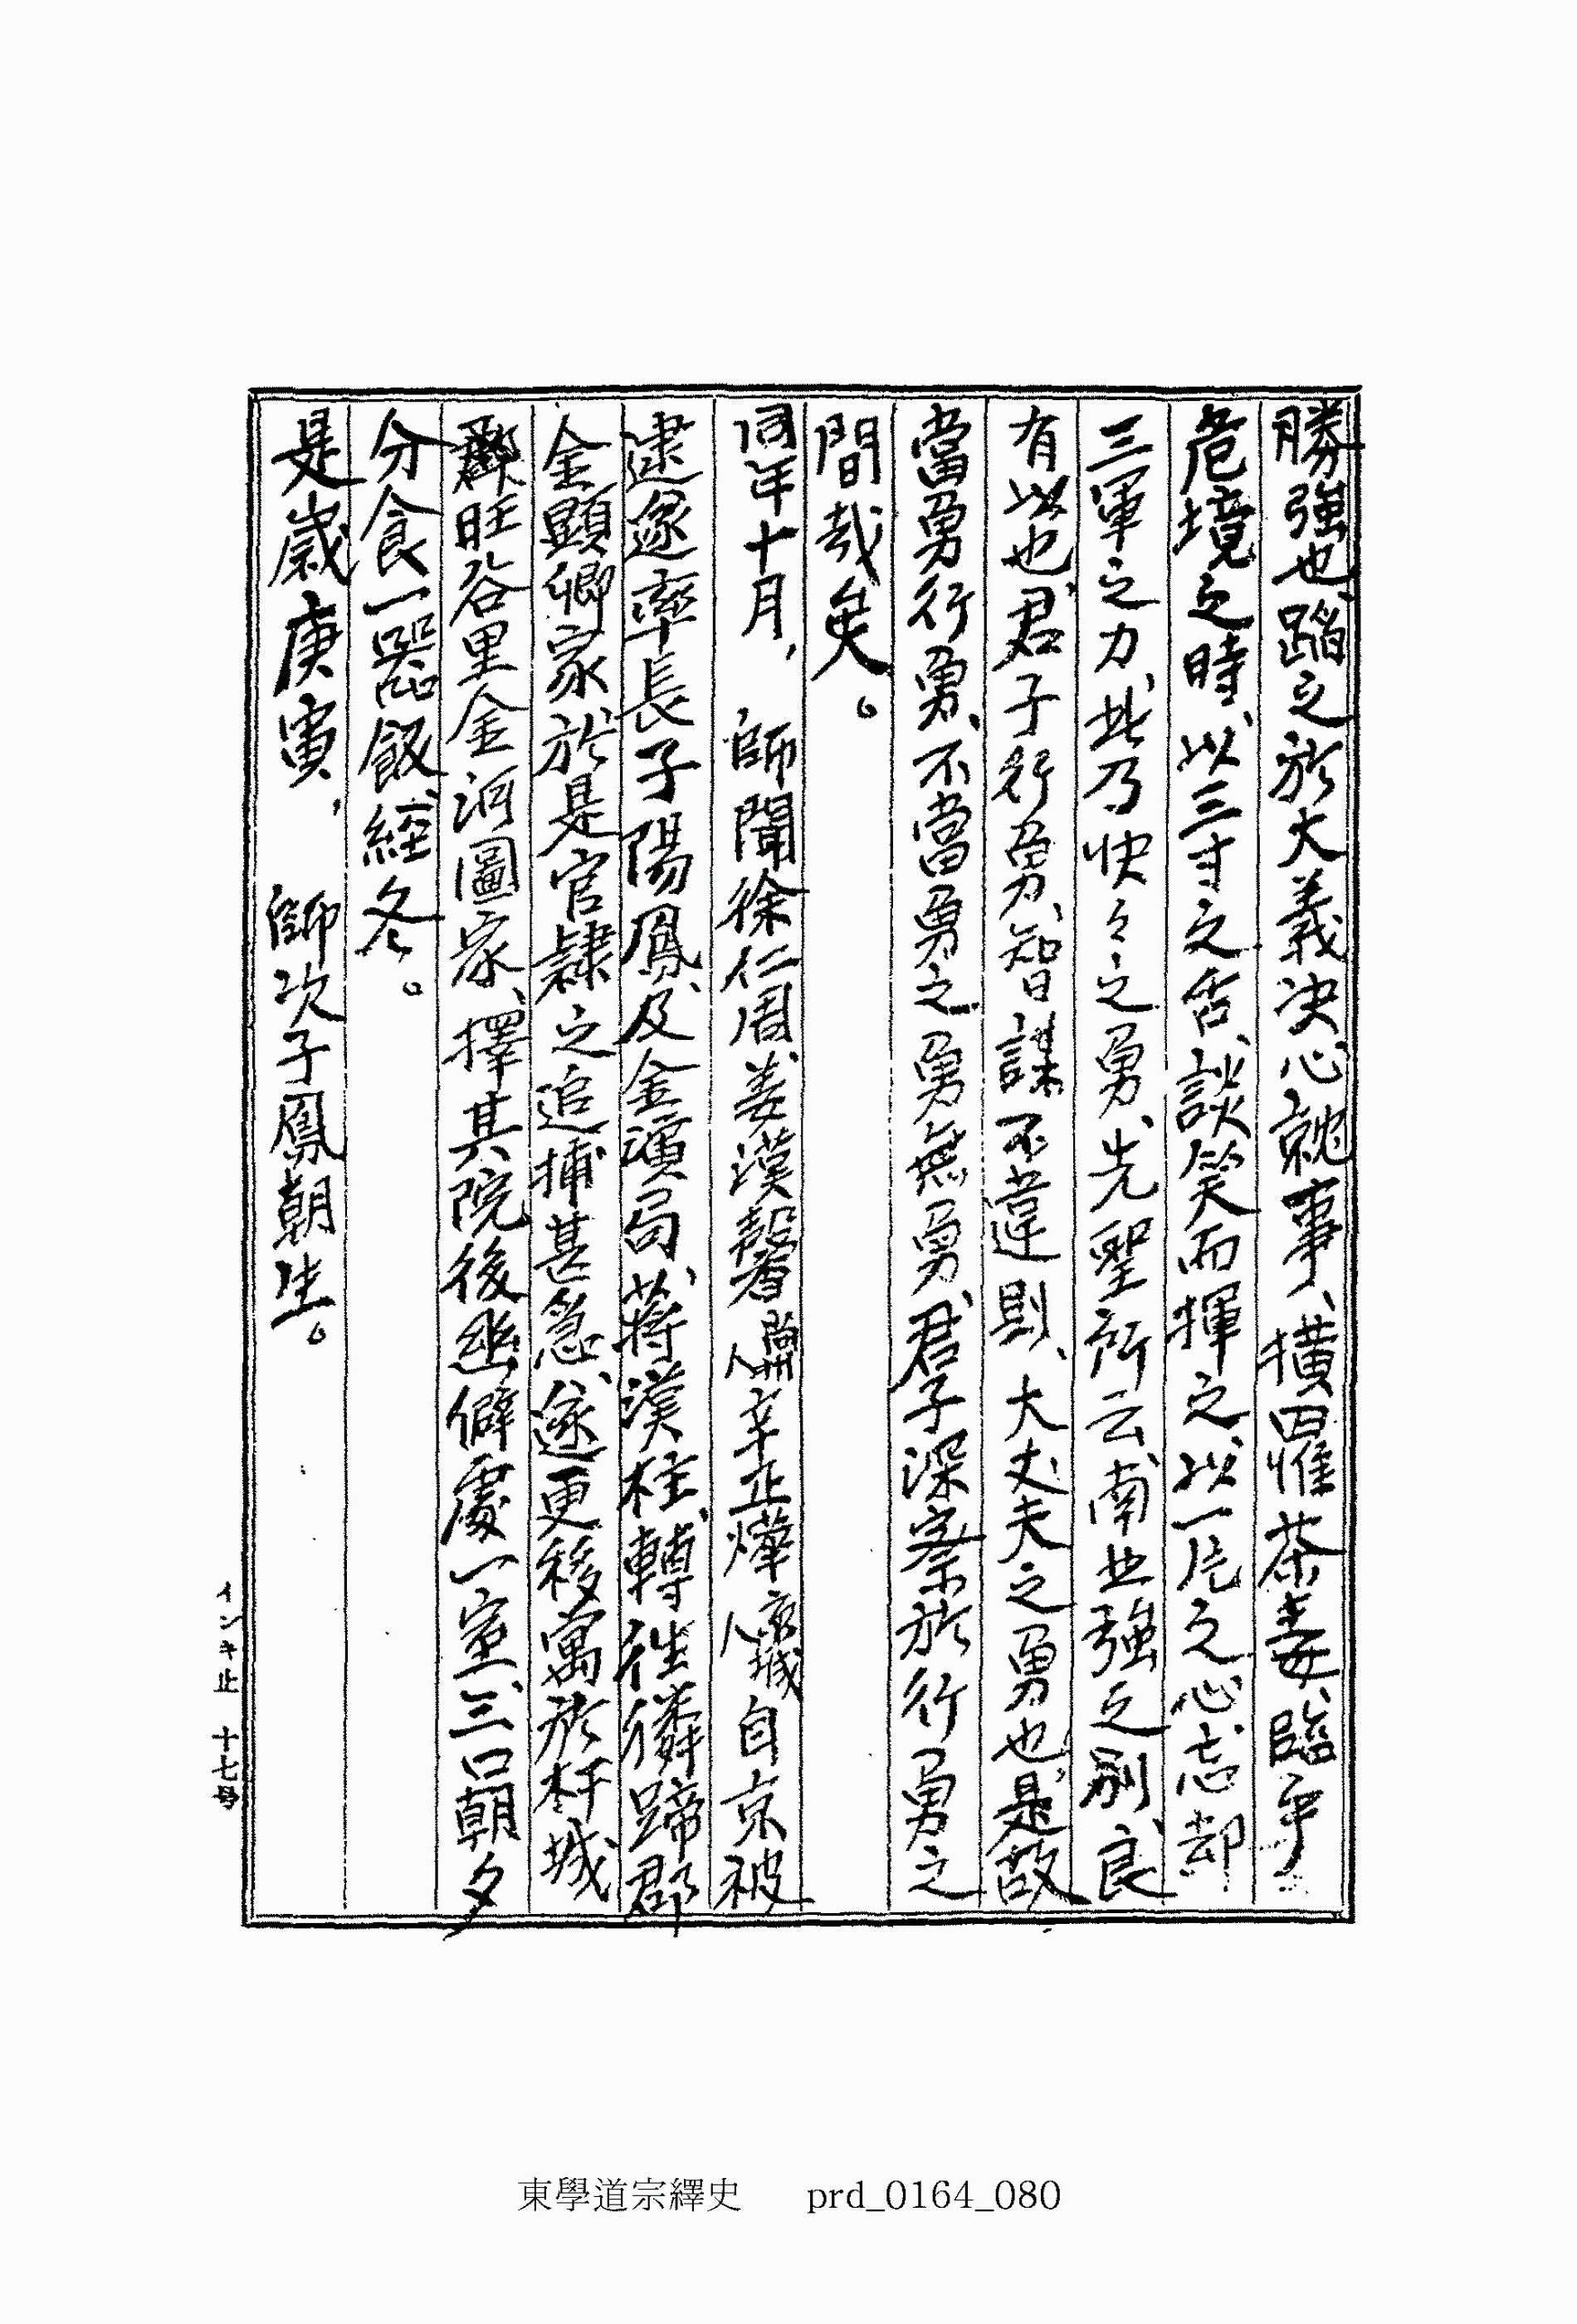 勝强也、蹈之於大義決心就事、橫罹茶毒、臨乎
危境之時、以三寸之舌、談笑而揮之、以一片之心、忘却
三軍之力、此乃快々之勇、先聖所云、南北强之別、良
有以也、君子行勇、智謀不違則、大丈夫之勇也、是故
當勇行勇、不當勇之勇無勇、君子深察於行勇之
間哉矣。
同年十月, 師聞徐仁周、姜漢馨 蘭州人 辛正燁 京城人 自京被
逮、遂率長子陽鳳、及金演局、蔣漢柱、轉往麟蹄郡
金顯卿家、於是官隷之追捕甚急、遂更移寓於杆城
郡旺谷里金河圖家、擇其院後幽僻處一室、三口朝夕
分食一器飯、經冬。
是歲庚寅, 師次子鳳朝生。
インキ止 十七号
東學道宗繹史 prd_0164_080